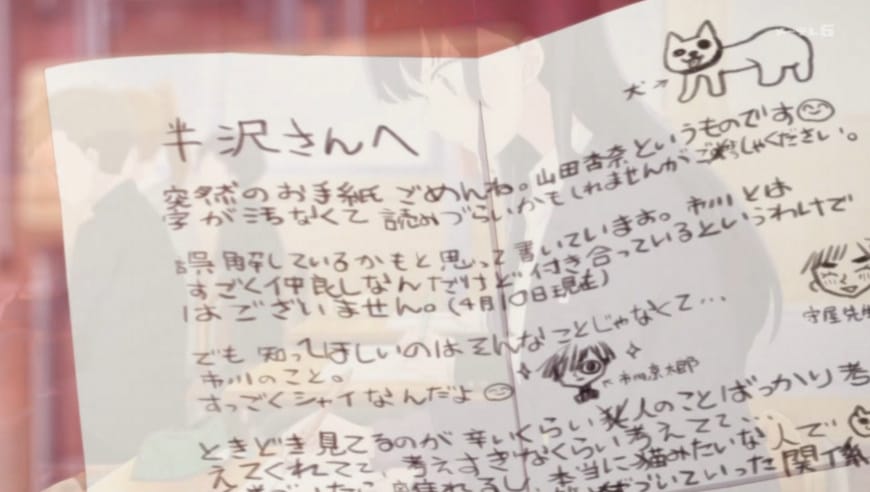 半沢さんへ
突然のお手紙ごめんね。山田杏奈というものです
字が汚なくて読みづらいかもしれませんがごめっしゃください。
誤解しているかもと思って書いています。市川とは
すごく仲良しなんだけど付き合っているというわけで
はございません。(4月10日現在)
でも知ってほしいのはそんなことじゃなくて…
市川のこと。
すっごくシャイなんだよ
ときどき見てるのが辛いくらい人のことばっかり考
えてくれてて、考えすぎなくらい考えてて…
本当に猫みたいな人で
づいていった関係
犬→
守屋先生
←市川京太郎